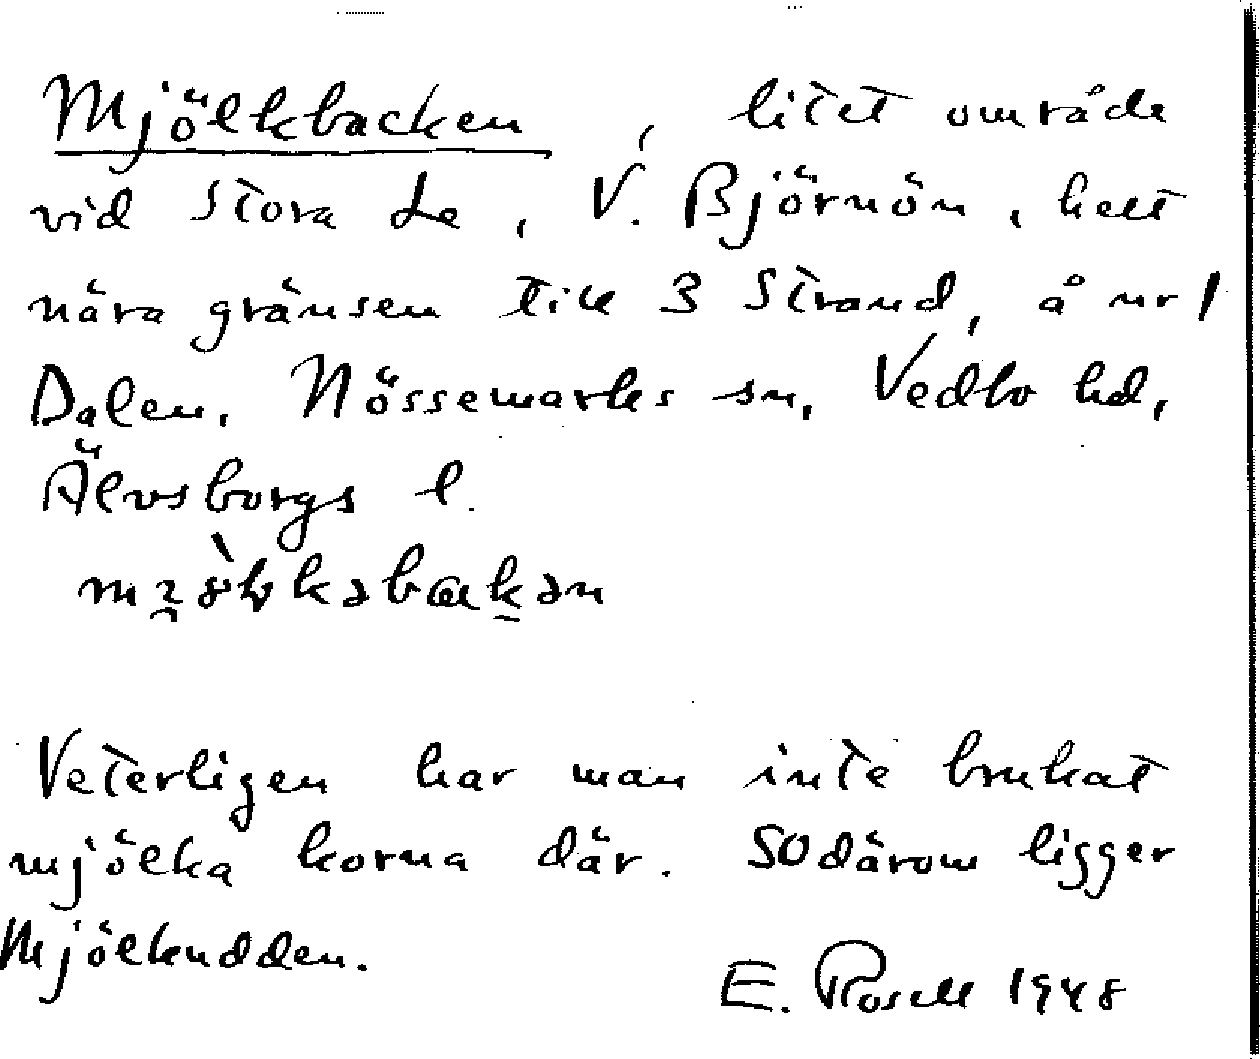 Mjölkbacken, litet område
vid Stora Le, V. Björnön, helt
nära gränsen till 3 Strand, å nr 1
Dalen, Nössemarks sn, Vedbo hd,
Älvsborgs l.
Veterligen har man inte brukat
mjölka korna där. SO därom ligger
Mjölkudden.
E. Rosell 1948